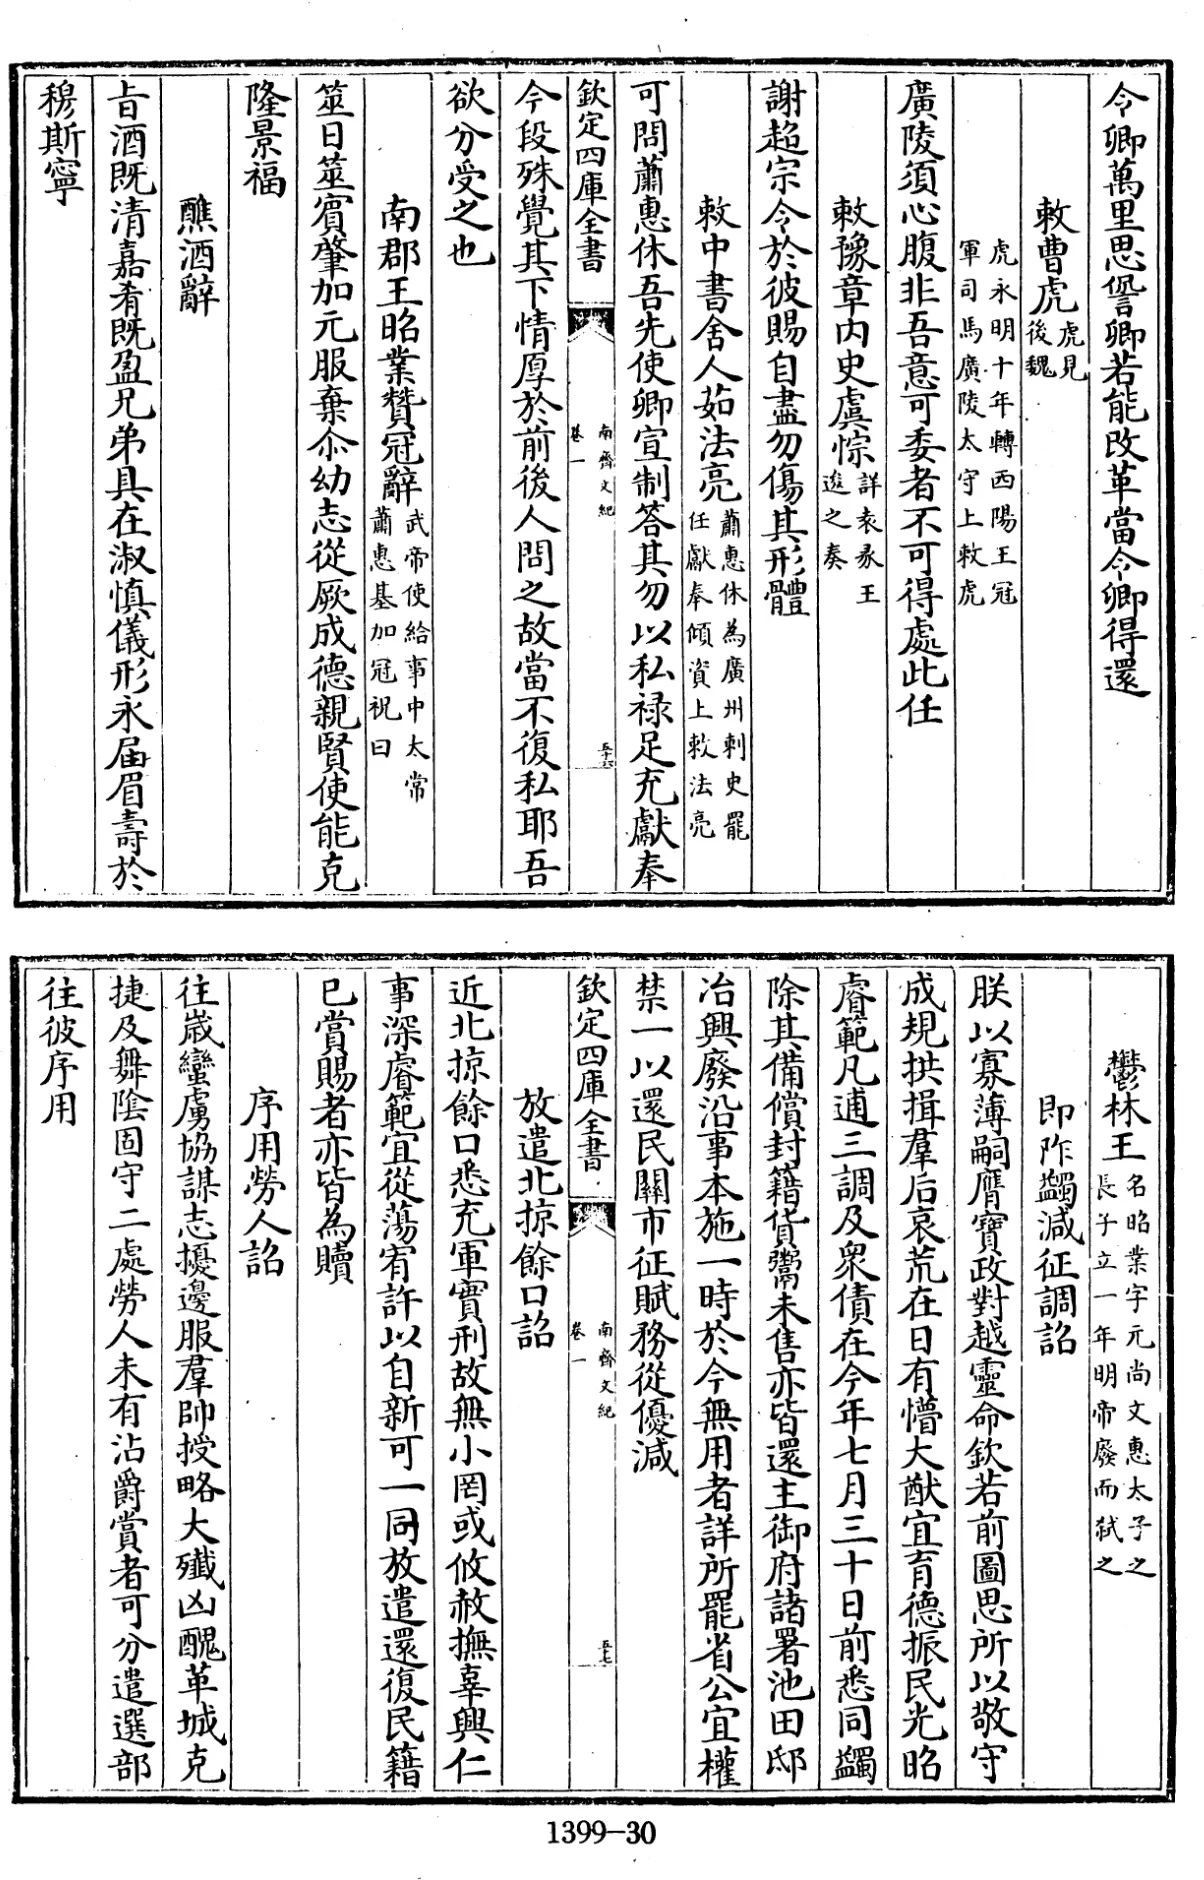 令卿萬里思諐卿若能改革當令卿得還
敕曹虎虎見後魏
虎永明十年轉西陽王冠
軍司馬廣陵太守上敕虎
廣陵須心腹非吾意可委者不可得處此任
敕豫章内史虞悰詳袁彖王逡之奏
謝超宗令於彼賜自盡勿傷其形體
敕中書舍人茹法亮蕭惠休為廣州刺史罷任獻奉傾資上敕法亮
可問蕭惠休吾先使卿宣制答其勿以私禄足充獻奉
欽定四庫全書 南齊文紀 卷一 五十六
今段殊覺其下情厚於前後人問之故當不復私耶吾
欲分受之也
南郡王昭業贊冠辭武帝使給事中太常蕭惠基加冠祝曰
筮日筮賓肇加元服棄尒幼志從厥成德親賢使能克
隆景福
醮酒辭
旨酒既清嘉肴既盈兄弟具在淑慎儀形永届眉壽於
穆斯寧
鬱林王名昭業字元尚文惠太子之長子立一年明帝廢而弑之
即阼蠲減征調詔
朕以寡薄嗣膺寶政對越靈命欽若前圖思所以敬守
成規拱揖羣后哀荒在日有懵大猷宜育德振民光昭
睿範凡逋三調及衆債在今年七月三十日前悉同蠲
除其備償封籍貨鬻未售亦皆還主御府諸署池田邸
冶興廢沿事本施一時於今無用者詳所罷省公宜權
禁一以還民關市征賦務從優減
欽定四庫全書 南齊文紀 卷一 五十七
放遣北掠餘口詔
近北掠餘口悉充軍實刑故無小罔或攸赦撫辜興仁
事深睿範宜從蕩宥許以自新可一同放遣還復民籍
已賞賜者亦皆為贖
序用勞人詔
往歳蠻虜協謀志擾邊服羣帥授略大殲凶醜革城克
捷及舞陰固守二處勞人未有沾爵賞者可分遣選部
往彼序用
1399-30